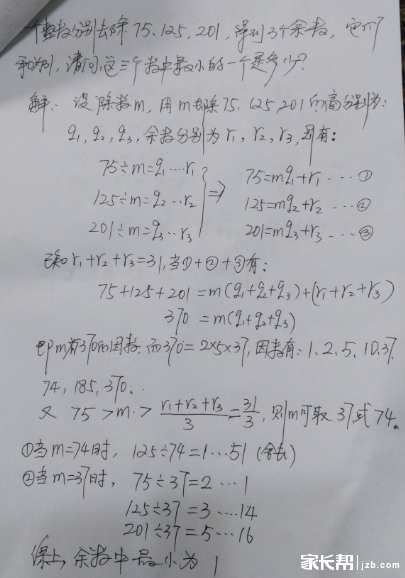 一个整数分别去除75、125、201,得到3个余数,它们
和为31,请问,这三个数中最小的一个是多少?
解: 设除数m,用m去除75、125,201的商分别为:
q₁,q₂,q₃,余数分别为r₁,r₂,r₃,则有:
75÷m=q₁…r₁
125÷m=q₂…r₂
201÷m=q₃…r₃
⇒
75=mq₁+r₁ …①
125=mq₂+r₂ …②
201=mq₃+r₃ …③
已知r₁+r₂+r₃=31,当①+②+③有:
75+125+201=m(q₁+q₂+q₃)+(r₁+r₂+r₃)
370=m(q₁+q₂+q₃)
即m为370的因数,而370=2×5×37,因数有:1、2、5、10、37、
74,185,370、
又 75>m>r₁+r₂+r₃/3=31/3,则m可取37或74。
①当m=74时, 125÷74=1…51 (舍去)
②当m=37时, 75÷37=2…1
125÷37=3…14
201÷37=5…16
综上,余数中最小为1
家长帮 jzb.com